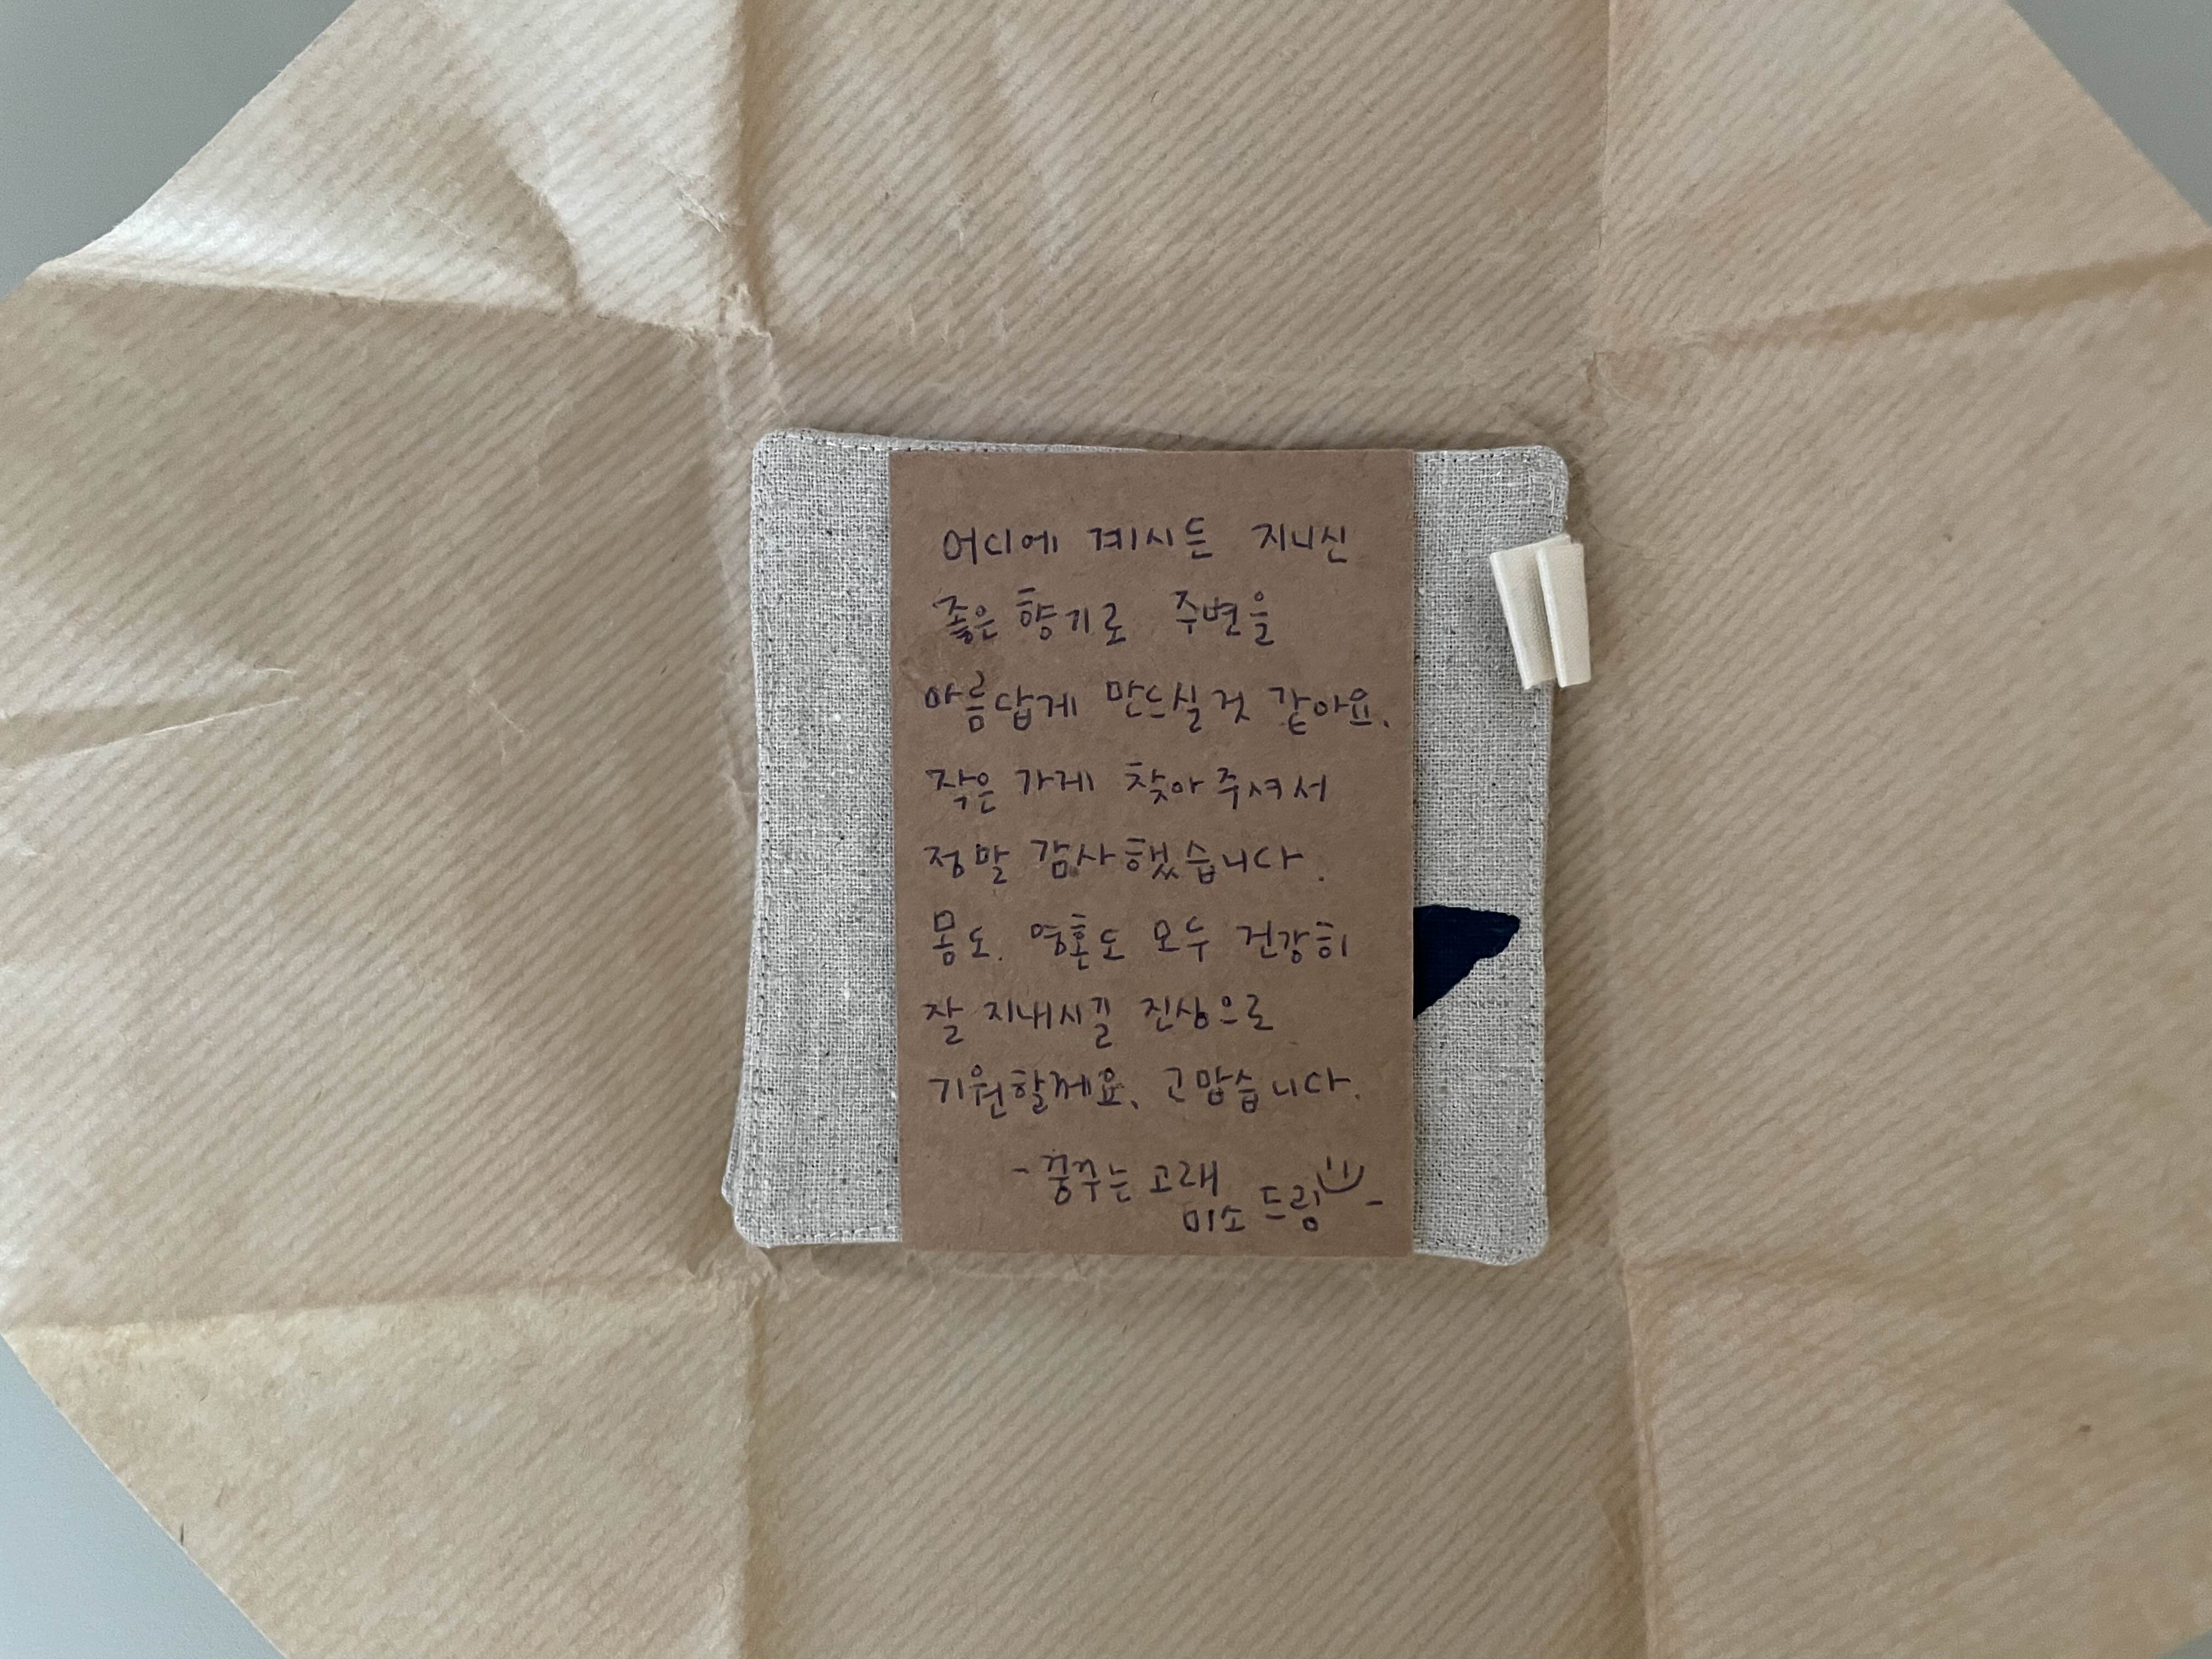 어디에 계시든 지니신
좋은 향기로 주변을
아름답게 만드실 것 같아요.
작은 가게 찾아 주셔서
정말 감사했습니다.
몸도. 영혼도 모두 건강히
잘 지내시길 진심으로
기원할께요. 고맙습니다.
- 꿈꾸는 고래
미소 드림 -